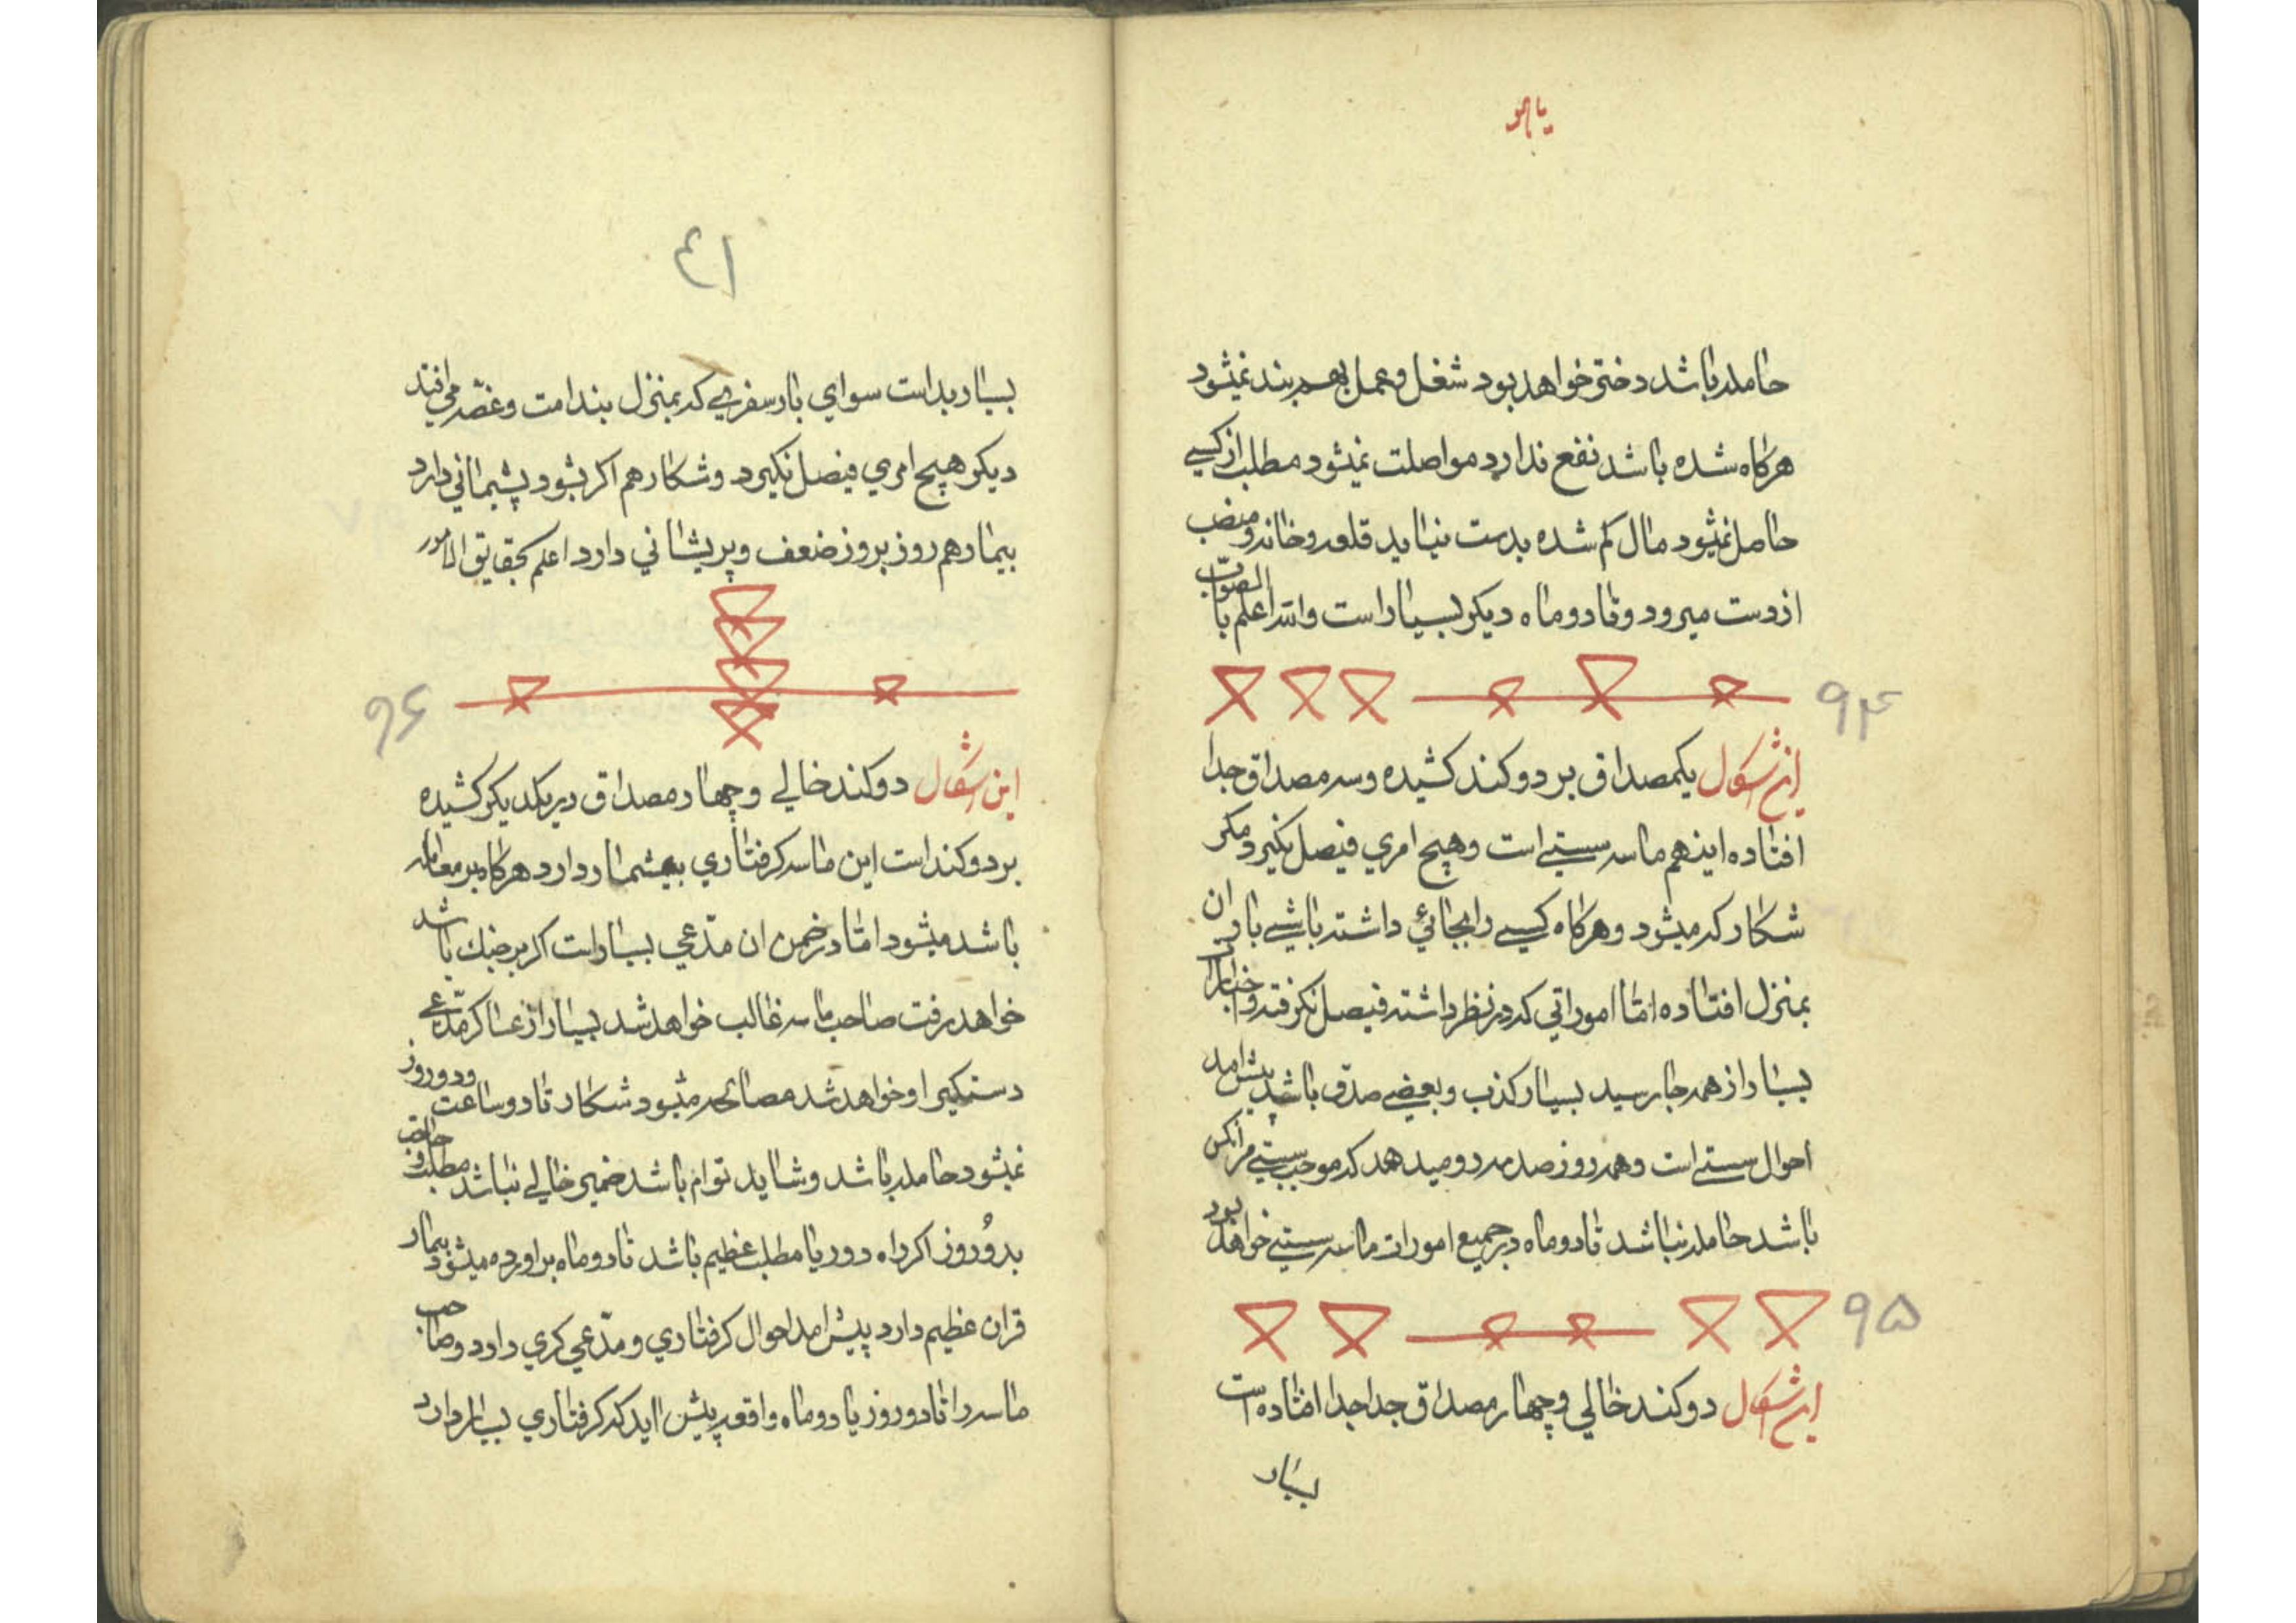 یا هو
حامله باشد دختر خواهد بود شغل و عمل بهم بند نمیشود
هرکاه شده باشد نفع ندارد مواصلت نمیشود مطلب از کسی
حاصل نمیشود مال کم شده بدست نیاید قلعه و خانه و منصب
از دست میرود و تا دو ماه دیکر بسیار است والله اعلم بالصواب
۹۴
این اشکال یکمصداق بر دو کند کشیده و سه مصداق جدا
افتاده اینهم ماسه سستی است و هیچ امری فیصل نکیرد مکر
شکار که میشود و هرکاه کسی را بجائی داشته باشی بار ان
بمنزل افتاده اما اموراتی که در نظر داشته فیصل نکرفته و اخبارات
بسیار از همه جا رسید بسیار کذب و بعضی صدق باشد پیش امد
احوال سستی است و همه روز صدمه رو میدهد که موجب سستی مر انکس
باشد حامله نباشد تا دو ماه در جمیع امورات ماسه سستی خواهد بود
۹۵
این اشکال دو کند خالی و چهار مصداق جدا جدا افتاده است
بسیار
٤١
بسیار بد است سوای بار سفری که بمنزل بندامت و غصه می افتد
دیکر هیچ امری فیصل نکیرد و شکار هم اکر بشود پشیمانی دارد
بیمار هم روز بروز ضعف و پریشانی دارد اعلم بحقایق الامور
۹۶
این اشکال دو کند خالی و چهار مصداق در یکدیکر کشیده
بر دو کند است این ماسه کرفتاری بیشمار دارد هرکاه بر معامله
باشد میشود اما در ضمن ان مدعی بسیار است اکر بر جنك باشد
خواهد رفت صاحب ماسه غالب خواهد شد بسیار از عساکر مدعی
دستکیر او خواهد شد مصالحه میشود شکار تا دو ساعت و دو روز
نمیشود حامله باشد و شاید توام باشد ضمیر خالی نباشد مطلب و حاجت
بدو روز اکر راه دور یا مطلب عظیم باشد تا دو ماه براورده میشود بیمار
قران عظیم دارد پیش امد احوال کرفتاری و مدعی کری دارد و صاحب
ماسه را تا دو روز یا دو ماه واقعه پیش اید که کرفتاری بسیار دارد